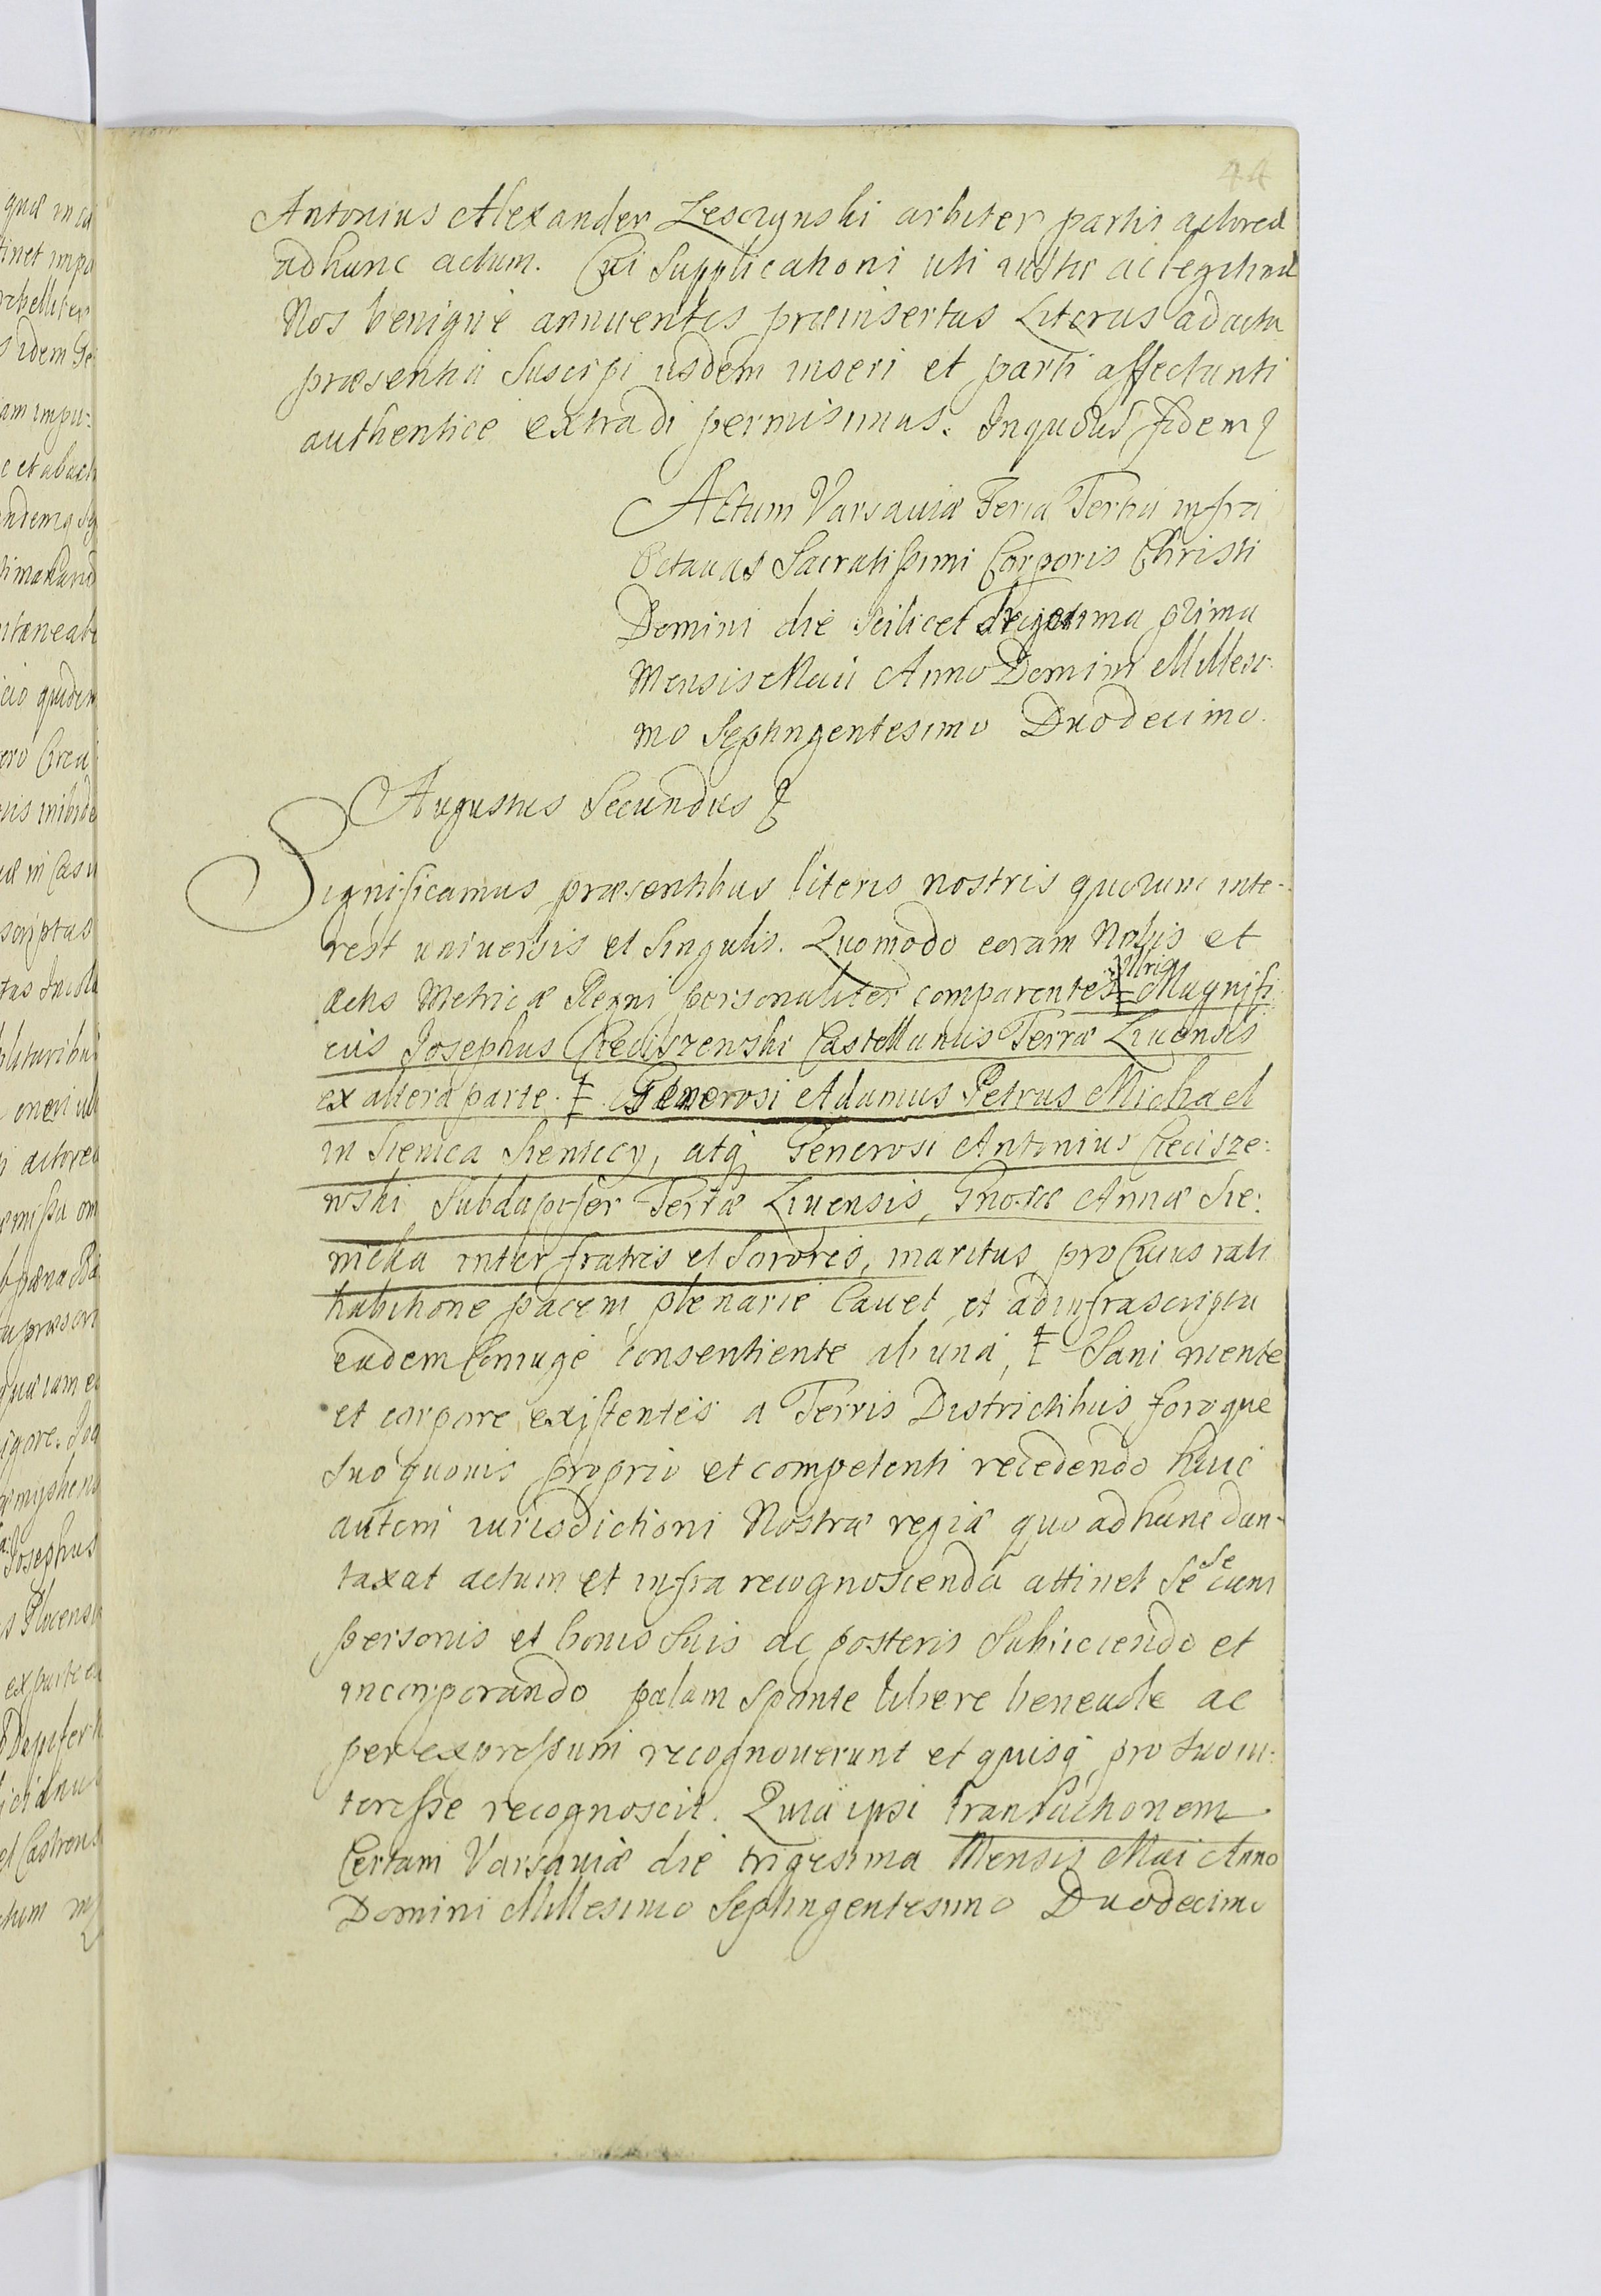 44
Antonius Alexander Lesczynski arbiter partis actoreæ
ad hunc actum. Cui Supplicationi uti iustæ ac legitimæ
Nos benigne annuentes præinsertas Literas ad acta
præsentia Suscipi iisdem inseri et parti affectanti
authentice extradi permisimus. In quorum fidem
Actum Varsaviæ Feria Tertia infra
Octavas Sacratissimi Corporis Christi
Domini die Scilicet Trigesima prima
Mensis Maii Anno Domini Millesi-
mo Septingentesimo Duodecimo.
Augustus Secundus
Significamus præsentibus literis nostris quorum inte-
rest universis et Singulis. Quomodo coram Nobis et
actis Metricæ Regni personaliter comparentes Magnifi
cus Josephus Cieciszewski Castellanus Terræ Livensis
ex altera parte. Generosi Adamus Petrus Michael
in Sienica Sieniccy, atq Generosi Antonius Ciecisze:
wski Subdapifer Terræ Livensis, Gnosæ Annæ Sie:
nicka inter fratres et Sorores, maritus, pro Cuius rati
habitione pacem plenarie Cavet, et ad infrascripta
eadem Coniuge consentiente ab una, Sani mente
et corpore existentes a Terris Districtibus foroque
Suo quovis proprio et competenti recedendo huic
autem iurisdictioni Nostræ regiæ quo ad hunc dun-
taxat actum et infra recognoscenda attinet Se Se cum
personis et bonis Suis ac posteris Subiiciendo et
incorporando palam Sponte libere benevole ac
per expressum recognoverunt et quisq pro Suo in:
teresse recognoscit. Quia ipsi transactionem
Certam Varsaviæ die trigesima Mensis Mai Anno
Domini Millesimo Septingentesimo Duodecimo